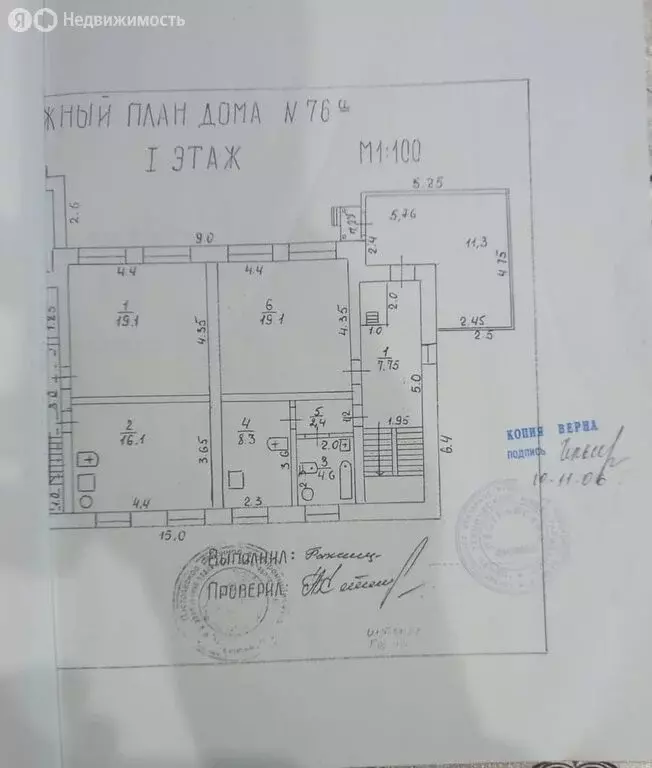 Я Недвижимость
ЖНЫЙ ПЛАН ДОМА N 76ᵃ
I ЭТАЖ М1:100
5.25
2.6
9.0
1.29
5,76
11,3
2.4
4.75
4.4
4.4
2.0
1
19.1
6
19.1
4.35
4.35
1.0
2.45
2.5
1.85
1
7.75
5.0
3.0
2
16.1
4
8.3
5
2,4
1.2
1.95
6.4
3.65
3.6
2.0
3
4.6
2.3
1.0
4.4
2.3
15.0
КОПИЯ ВЕРНА
ПОДПИСЬ
10.11.06
ВЫПОЛНИЛ:
ПРОВЕРИЛ: